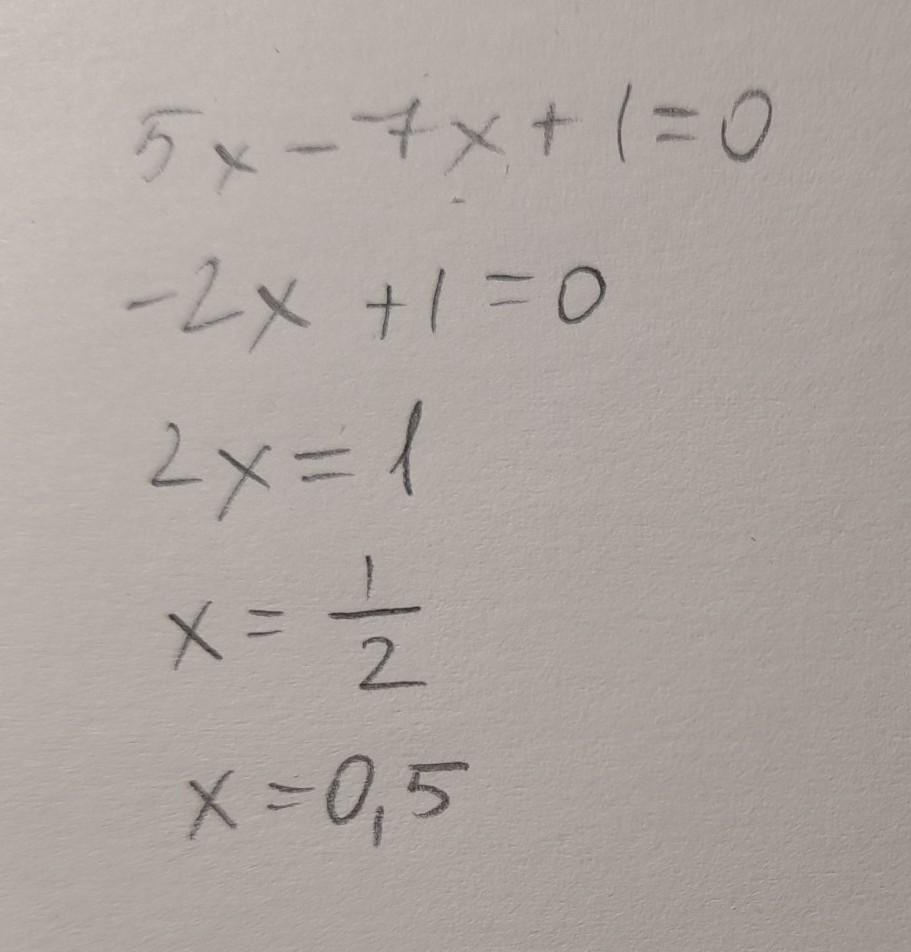 5x - 7x + 1 = 0
-2x + 1 = 0
2x = 1
x = 1/2
x = 0,5